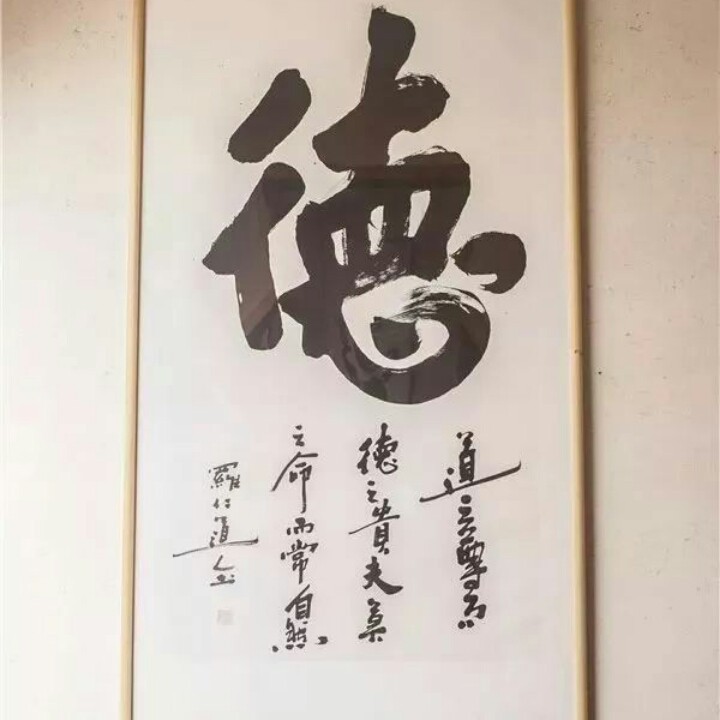 德
道之尊
德之貴夫莫
之命而常自然
羅仁道人书